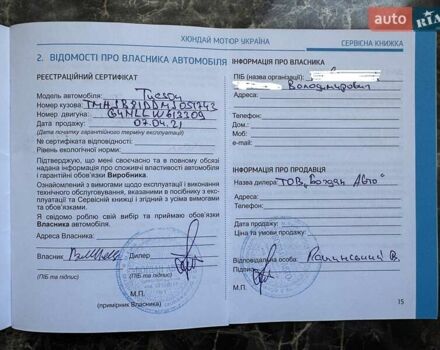 auto RIA
ХЮНДАЙ МОТЮР УКРАЇНА
СЕРВІСНА КНИЖКА
2. ВІДОМОСТІ ПРО ВЛАСНИКА АВТОМОБІЛЯ
РЕЄСТРАЦІЙНИЙ СЕРТИФІКАТ
Модель автомобіля: Tucson
Номер кузова:
Номер двигуна:
Дата продажу: 07.04.21
(Дата початку гарантійного терміну експлуатації)
№ сертифіката відповідності:
Рівень екологічної норми:
Підтверджую, що мені своєчасно та в повному обсязі
надана інформація про споживчі властивості автомобіля
і гарантійні обов'язки Виробника.
Ознайомлений з вимогами щодо експлуатації і виконання
технічного обслуговування, вказаними в посібнику з екс-
плуатації та Сервісній книжці і згідний з усіма вимогами
та обов'язками.
Я свідомо роблю свій вибір та приймаю обов'язки
Власника автомобіля.
Адреса Власника:
Власник
Дилер
(ПІБ та підпис)
(ПІБ та підпис)
М.П.
(примірник Власника)
ІНФОРМАЦІЯ ПРО ВЛАСНИКА
ПІБ (назва організації):
Володимирович
Адреса:
Телефони:
Дом.:
Моб.:
e-mail:
ІНФОРМАЦІЯ ПРО ПРОДАВЦЯ
Назва дилера: ТОВ "Богдан Авто"
Адреса:
Телефони:
Дата продажу:
Ціна та умови продажу:
Відповідальна особа:
Підпис:
М.П.
15